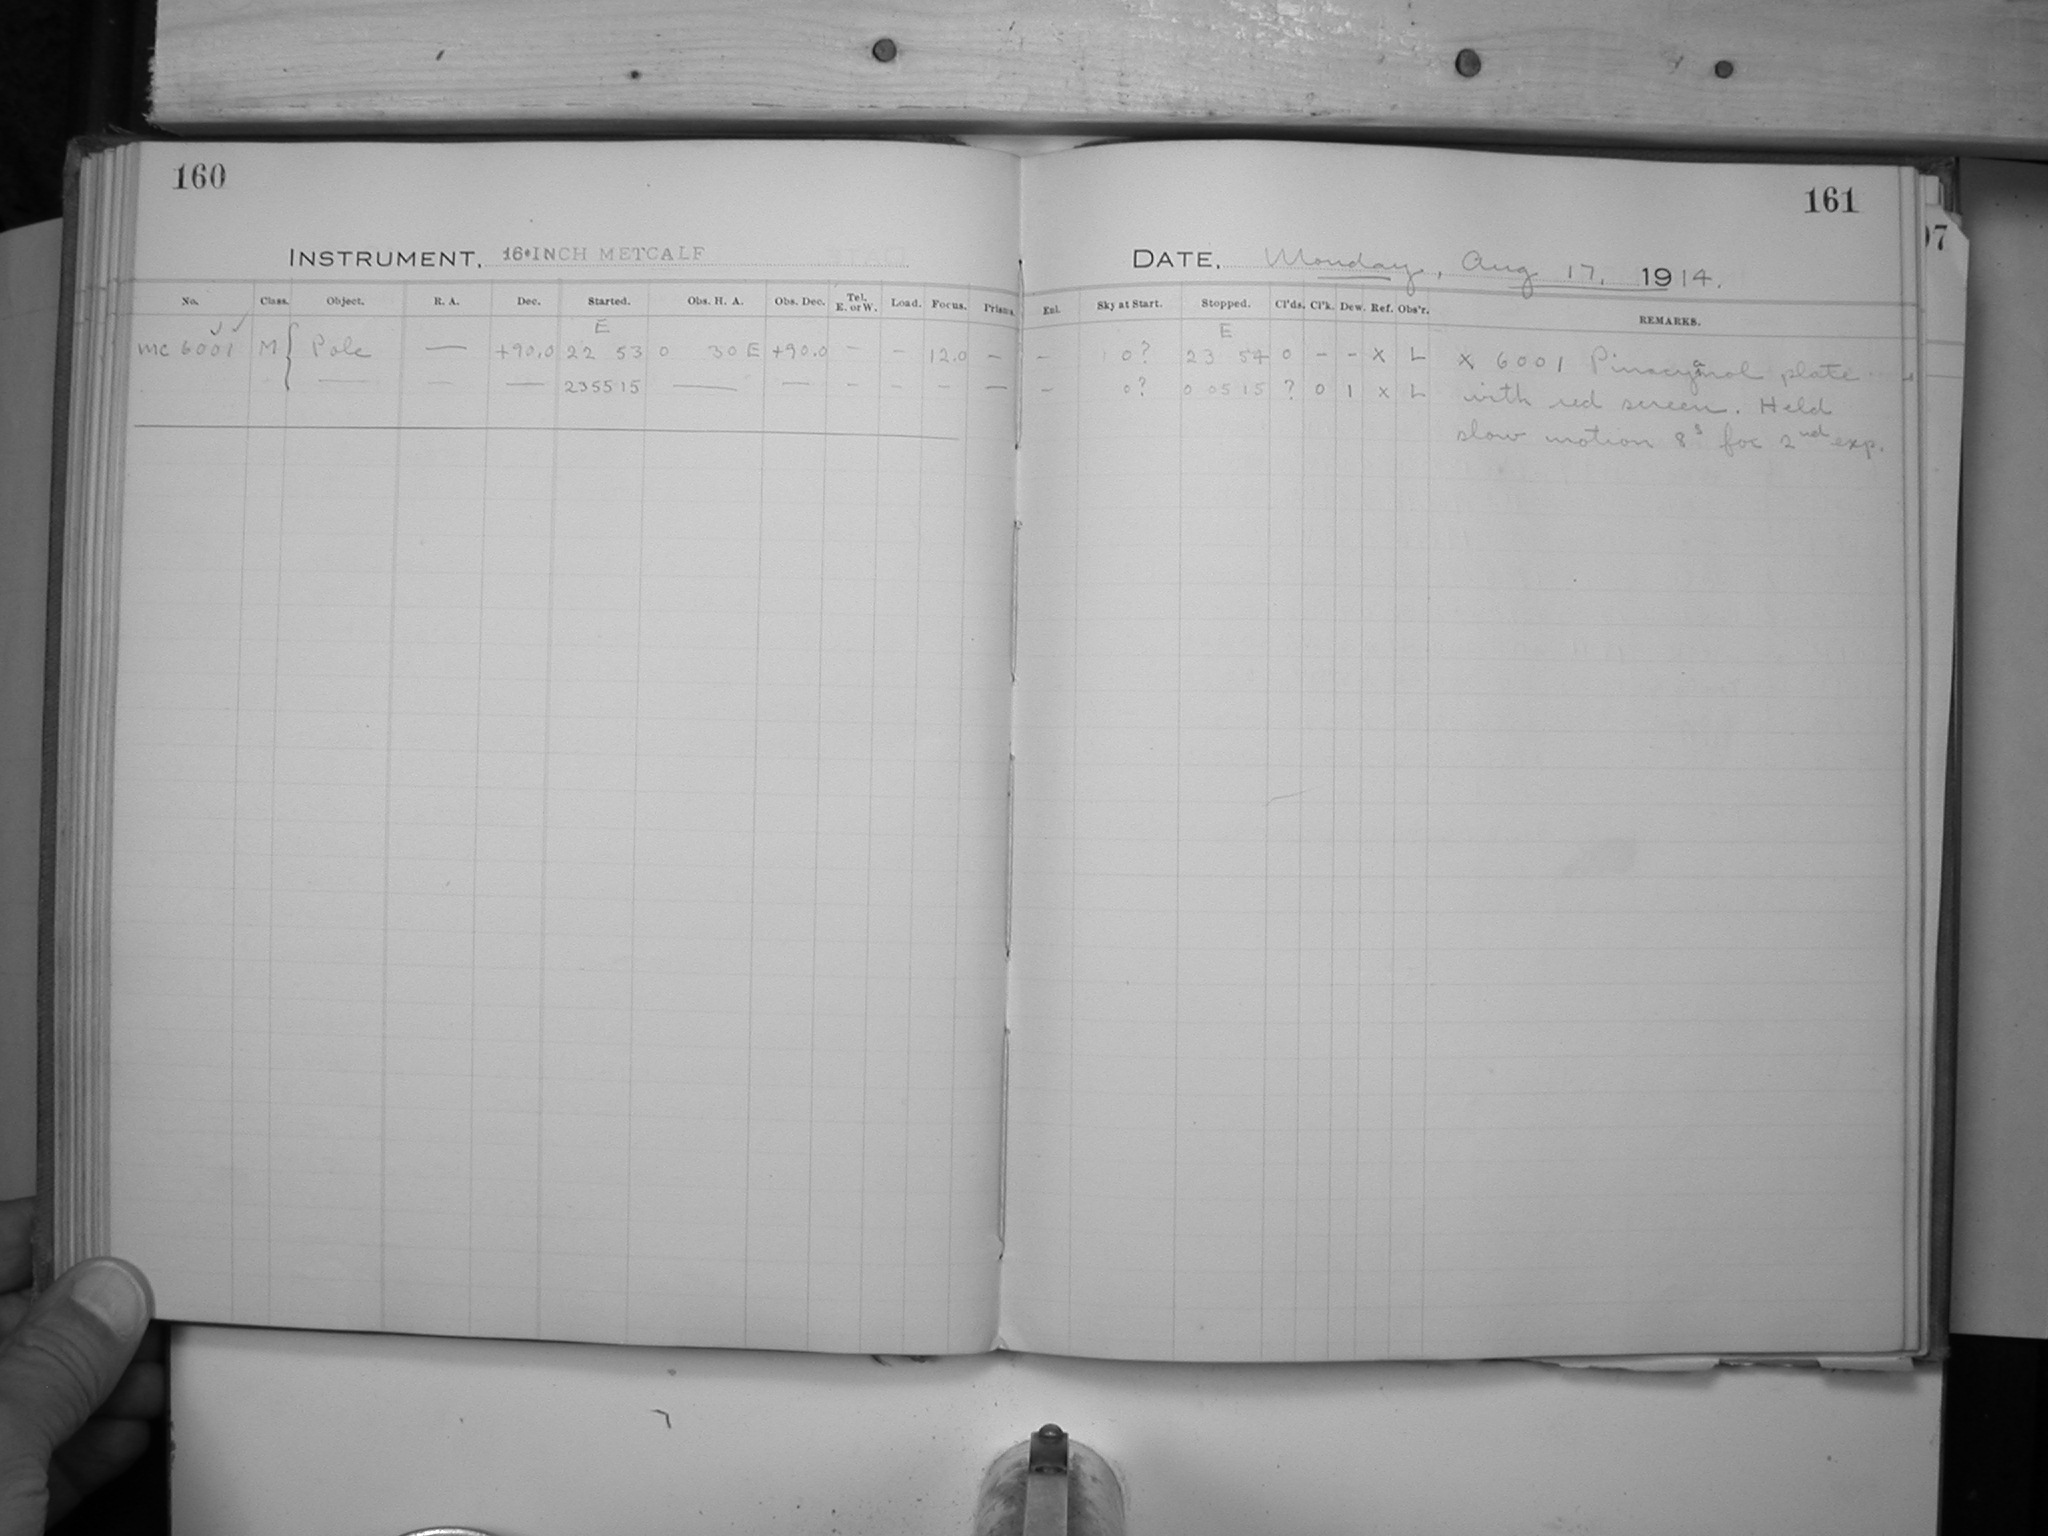 160
161
97
INSTRUMENT, 16-INCH METCALF
DATE, Monday, Aug 17, 1914.
No. Class. Object. R. A. Dec. Started. Obs. H. A. Obs. Dec. Tel. E. or W. Load. Focus. Prisms. Enl. Sky at Start. Stopped. Cl'ds. Cl'k. Dew. Ref. Obs'r. REMARKS.
E E
MC 6001 M { Pole — +90.0 22 53 0 30 E +90.0 - - 12.0 - - 0? 23 54 0 - - X L X 6001 Pinacyanol plate
— — — 23 55 15 — — - - - — - 0? 0 05 15 ? 0 1 X L with red screen. Held
slow motion 8s for 2nd exp.